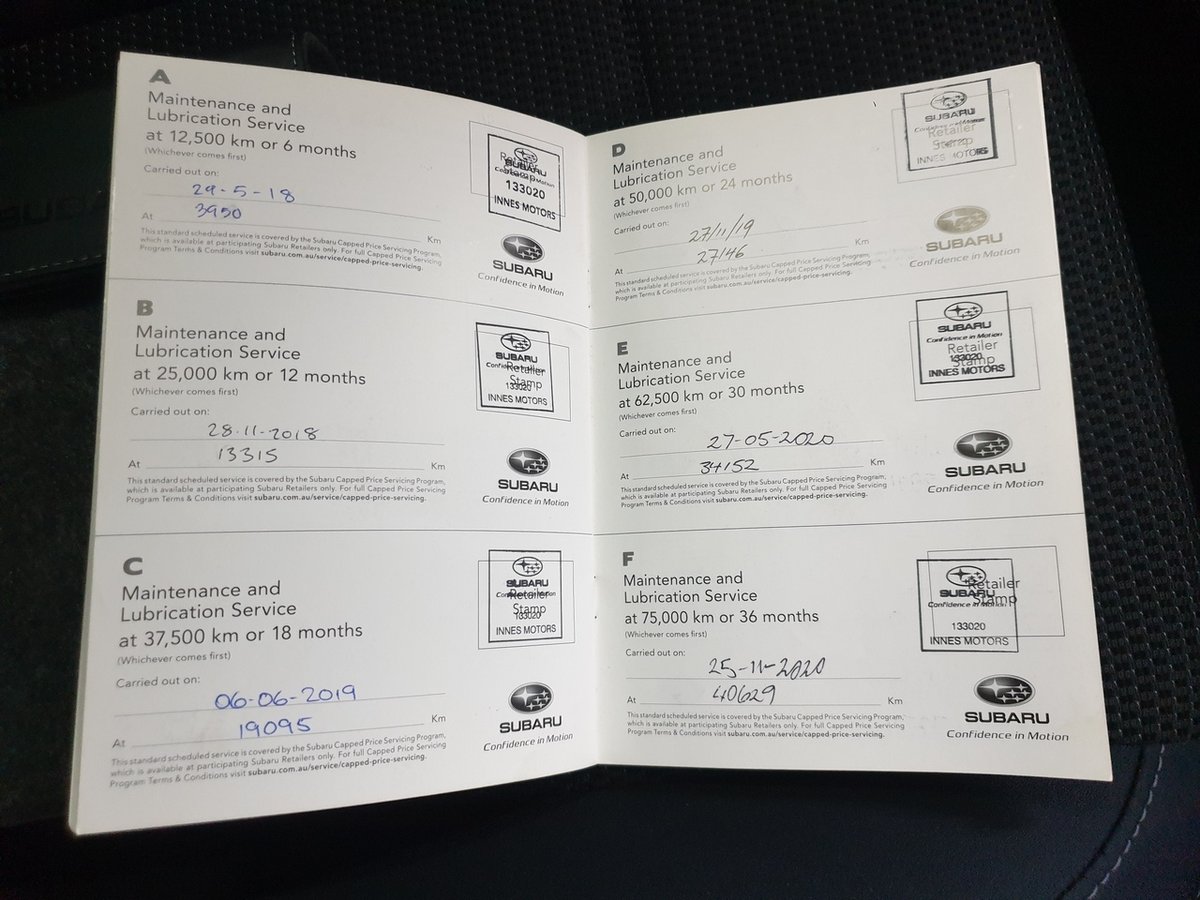 A
Maintenance and
Lubrication Service
at 12,500 km or 6 months
(Whichever comes first)
Carried out on:
29-5-18
At 3950 Km
This standard scheduled service is covered by the Subaru Capped Price Servicing Program,
which is available at participating Subaru Retailers only. For full Capped Price Servicing
Program Terms & Conditions visit subaru.com.au/service/capped-price-servicing.
Retailer
Stamp
SUBARU
Confidence in Motion
133020
INNES MOTORS
SUBARU
Confidence in Motion
B
Maintenance and
Lubrication Service
at 25,000 km or 12 months
(Whichever comes first)
Carried out on:
28.11-2018
At 13315 Km
This standard scheduled service is covered by the Subaru Capped Price Servicing Program,
which is available at participating Subaru Retailers only. For full Capped Price Servicing
Program Terms & Conditions visit subaru.com.au/service/capped-price-servicing.
SUBARU
Confidence in Motion
Retailer
Stamp
133020
INNES MOTORS
SUBARU
Confidence in Motion
C
Maintenance and
Lubrication Service
at 37,500 km or 18 months
(Whichever comes first)
Carried out on:
06-06-2019
At 19095 Km
This standard scheduled service is covered by the Subaru Capped Price Servicing Program,
which is available at participating Subaru Retailers only. For full Capped Price Servicing
Program Terms & Conditions visit subaru.com.au/service/capped-price-servicing.
SUBARU
Confidence in Motion
Retailer
Stamp
133020
INNES MOTORS
SUBARU
Confidence in Motion
D
Maintenance and
Lubrication Service
at 50,000 km or 24 months
(Whichever comes first)
Carried out on:
27/11/19
At 27146 Km
This standard scheduled service is covered by the Subaru Capped Price Servicing Program,
which is available at participating Subaru Retailers only. For full Capped Price Servicing
Program Terms & Conditions visit subaru.com.au/service/capped-price-servicing.
SUBARU
Confidence in Motion
Retailer
Stamp
INNES MOTORS
SUBARU
Confidence in Motion
E
Maintenance and
Lubrication Service
at 62,500 km or 30 months
(Whichever comes first)
Carried out on:
27-05-2020
At 34152 Km
This standard scheduled service is covered by the Subaru Capped Price Servicing Program,
which is available at participating Subaru Retailers only. For full Capped Price Servicing
Program Terms & Conditions visit subaru.com.au/service/capped-price-servicing.
SUBARU
Confidence in Motion
Retailer
Stamp
133020
INNES MOTORS
SUBARU
Confidence in Motion
F
Maintenance and
Lubrication Service
at 75,000 km or 36 months
(Whichever comes first)
Carried out on:
25-11-2020
At 40629 Km
This standard scheduled service is covered by the Subaru Capped Price Servicing Program,
which is available at participating Subaru Retailers only. For full Capped Price Servicing
Program Terms & Conditions visit subaru.com.au/service/capped-price-servicing.
Retailer
Stamp
SUBARU
Confidence in Motion
133020
INNES MOTORS
SUBARU
Confidence in Motion